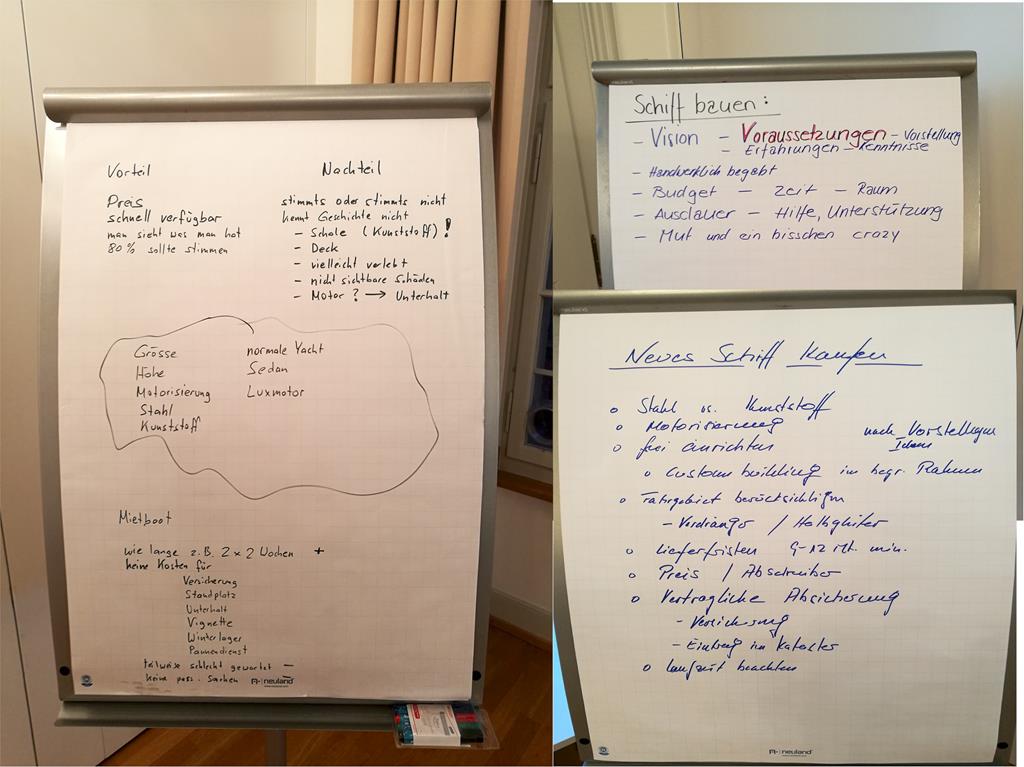 Vorteil
Preis
schnell verfügbar
man sieht was man hat
80% sollte stimmen
Nachteil
stimmts oder stimmts nicht
kennt Geschichte nicht
- Schale (Kunststoff) !
- Deck
- vielleicht verlebt
- nicht sichtbare Schäden
- Motor ? → Unterhalt
Grösse
Höhe
Motorisierung
Stahl
Kunststoff
normale Yacht
Sedan
Luxmotor
Mietboot
wie lange z.B. 2 x 2 Wochen +
keine Kosten für
Versicherung
Standplatz
Unterhalt
Vignette
Winterlager
Pannendienst
teilweise schlecht gewartet -
keine pers. Sachen
neuland
Schiff bauen:
- Vision - Voraussetzungen - Vorstellung
- Erfahrungen - Kenntnisse
- Handwerklich begabt
- Budget - Zeit - Raum
- Ausdauer - Hilfe, Unterstützung
- Mut und ein bisschen crazy
Neues Schiff kaufen
o Stahl vs. Kunststoff
o Motorisierung
o frei einrichten
nach Vorstellungen
Ideen
o Custom building im begr. Rahmen
o Fahrgebiet berücksichtigen
- Verdränger / Halbgleiter
o Lieferfristen 9-12 Mt. min.
o Preis / Abschreiber
o Vertragliche Absicherung
- Versicherung
- Eintrag im Kataster
o Laufzeit beachten
neuland